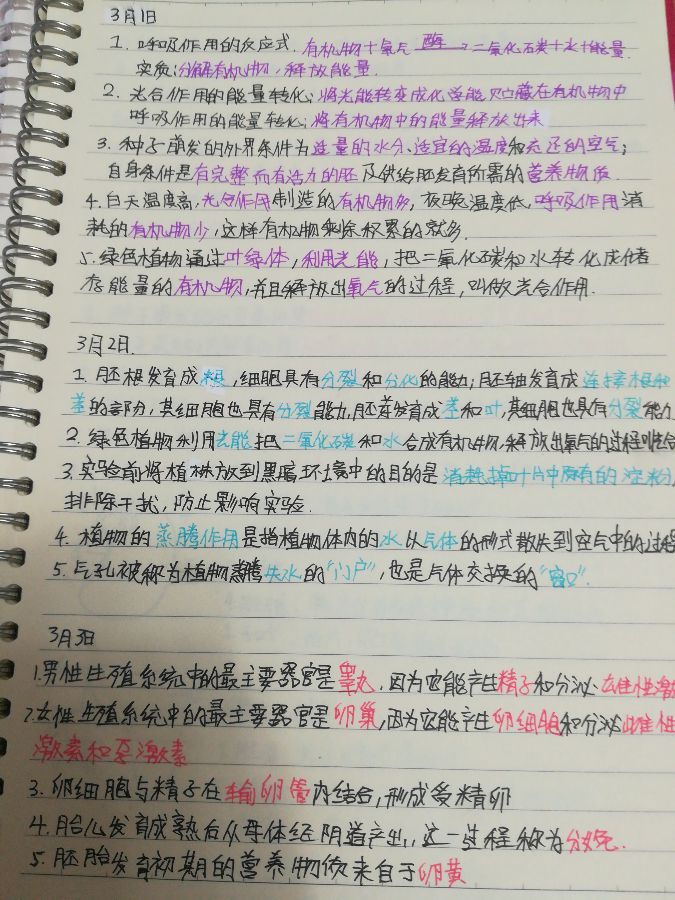 3月1日
1. 呼吸作用的反应式. 有机物+氧气 酶→ 二氧化碳+水+能量.
实质: 分解有机物, 释放能量.
2. 光合作用的能量转化: 将光能转变成化学能贮藏在有机物中
呼吸作用的能量转化: 将有机物中的能量释放出来
3. 种子萌发的外界条件为适量的水分、适宜的温度和充足的空气;
自身条件是有完整而有活力的胚及供给胚发育所需的营养物质.
4. 白天温度高, 光合作用制造的有机物多, 夜晚温度低, 呼吸作用消
耗的有机物少, 这样有机物剩余积累的就多.
5. 绿色植物通过叶绿体, 利用光能, 把二氧化碳和水转化成储
存能量的有机物, 并且释放出氧气的过程, 叫做光合作用.
3月2日.
1. 胚根发育成根, 细胞具有分裂和分化的能力; 胚轴发育成连接根和
茎的部分, 其细胞也具有分裂能力, 胚芽发育成茎和叶, 其细胞也具有分裂能力
2. 绿色植物利用光能把二氧化碳和水合成有机物, 释放出氧气的过程
3. 实验前将植株放到黑暗环境中的目的是消耗掉叶片中原有的淀粉,
排除干扰, 防止影响实验.
4. 植物的蒸腾作用是指植物体内的水以气体的形式散失到空气中的过程
5. 气孔被称为植物蒸腾失水的"门户", 也是气体交换的"窗口".
3月3日
1. 男性生殖系统中的最主要器官是睾丸, 因为它能产生精子和分泌雄性激
2. 女性生殖系统中的最主要器官是卵巢, 因为它能产生卵细胞和分泌雌性
激素和孕激素
3. 卵细胞与精子在输卵管内结合, 形成受精卵
4. 胎儿发育成熟后从母体经阴道产出, 这一过程称为分娩.
5. 胚胎发育初期的营养物质来自于卵黄